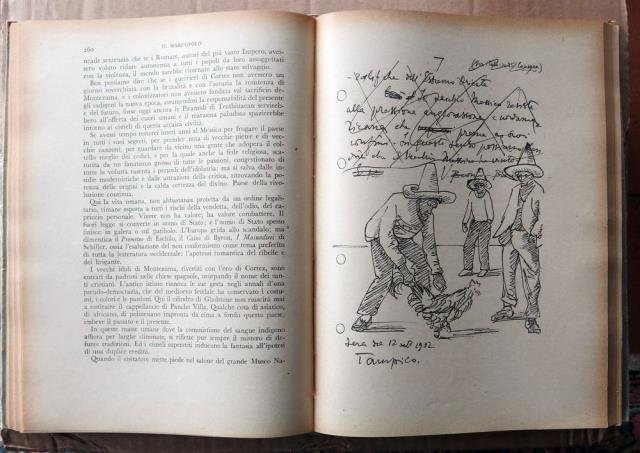 260
IL MARCOPOLO
neade sentenziâ che se i Romani, autori del più vasto Impero, aves-
sero voluto ridare autonomia a tutti i popoli da loro assoggettati
con la violenza, il mondo sarebbe ritornato allo stato selvaggio.
Ben possiamo dire che se i guerrieri di Cortez non avessero un
giorno soverchiata con la brutalità e con l'astuzia la resistenza di
Montezuma, e i colonizzatori non avessero fondata sul sacrificio de-
gli indigeni la nuova epoca, assumendosi la responsabilità del presente
e del futuro, forse oggi ancora le Piramidi di Teotihuacan servireb-
bero all'offerta dei cuori umani e il marasma paludoso spazierebbe
intorno ai cimeli di questa arcaica civiltà.
Se avessi tempo tornerei interi anni al Messico per frugare il paese
in tutti i suoi segreti, per prender nota di vecchie pietre e di vec-
chie canzoni, per guardare da vicino una gente che adopera il col-
tello meglio dei codici, e per la quale anche la fede religiosa, scatu-
rita da un fanatismo grosso di tutte le passioni, congestionato di
tutte le voluttà rasenta i pericoli dell'idolatria: ma si salva dalle in-
sidie modernistiche e dalle astrazioni della critica, ritrovando la po-
tenza delle origini e la calda certezza del divino. Paese della rivo-
luzione continua.
Qui la vita umana, non abbastanza protetta da un ordine legali-
tario, rimane esposta a tutti i rischi della vendetta, dell'odio, del ca-
priccio personale. Vivere non ha valore; ha valore combattere. Il
fuori legge si converte in uomo di Stato; e l'uomo di Stato spesso
finisce in galera o sul patibolo. L'Europa grida allo scandalo; ma
dimentica il Prometeo di Eschilo, il Caino di Byron, I Masnadieri di
Schiller, ossia l'esaltazione del non conformismo come tema preferito
di tutta la letteratura occidentale: l'apoteosi romantica del ribelle e
del brigante.
I vecchi idoli di Montezuma, rivestiti con l'oro di Cortez, sono
entrati da padroni nelle chiese spagnole, usurpando il nome dei san-
ti cristiani. L'antico istinto rinnova le sue gesta negli annali d'una
pseudo-democrazia, che del medioevo feudale ha conservato i costu-
mi, i colori e le passioni. Qui il cilindro di Gladstone non riuscirà mai
a sostituire il cappellaccio di Pancho Villa. Qualche cosa di asiatico,
di africano, di polinesiano impronta da cima a fondo questo paese,
imbeve il passato e il presente.
In queste masse umane dove la commistione del sangue indigeno
affiora per larghe stimmate, si riflette pur sempre il mistero di de-
funte tradizioni. Ed i cimeli superstiti inducono la fantasia all'ipotesi
di una duplice eredità.
Quando il visitatore mette piede nel salone del grande Museo Na-
7
dell'
Messico
alla pressione
che preme
confini
che
Sera del 12 1932
Tampico.